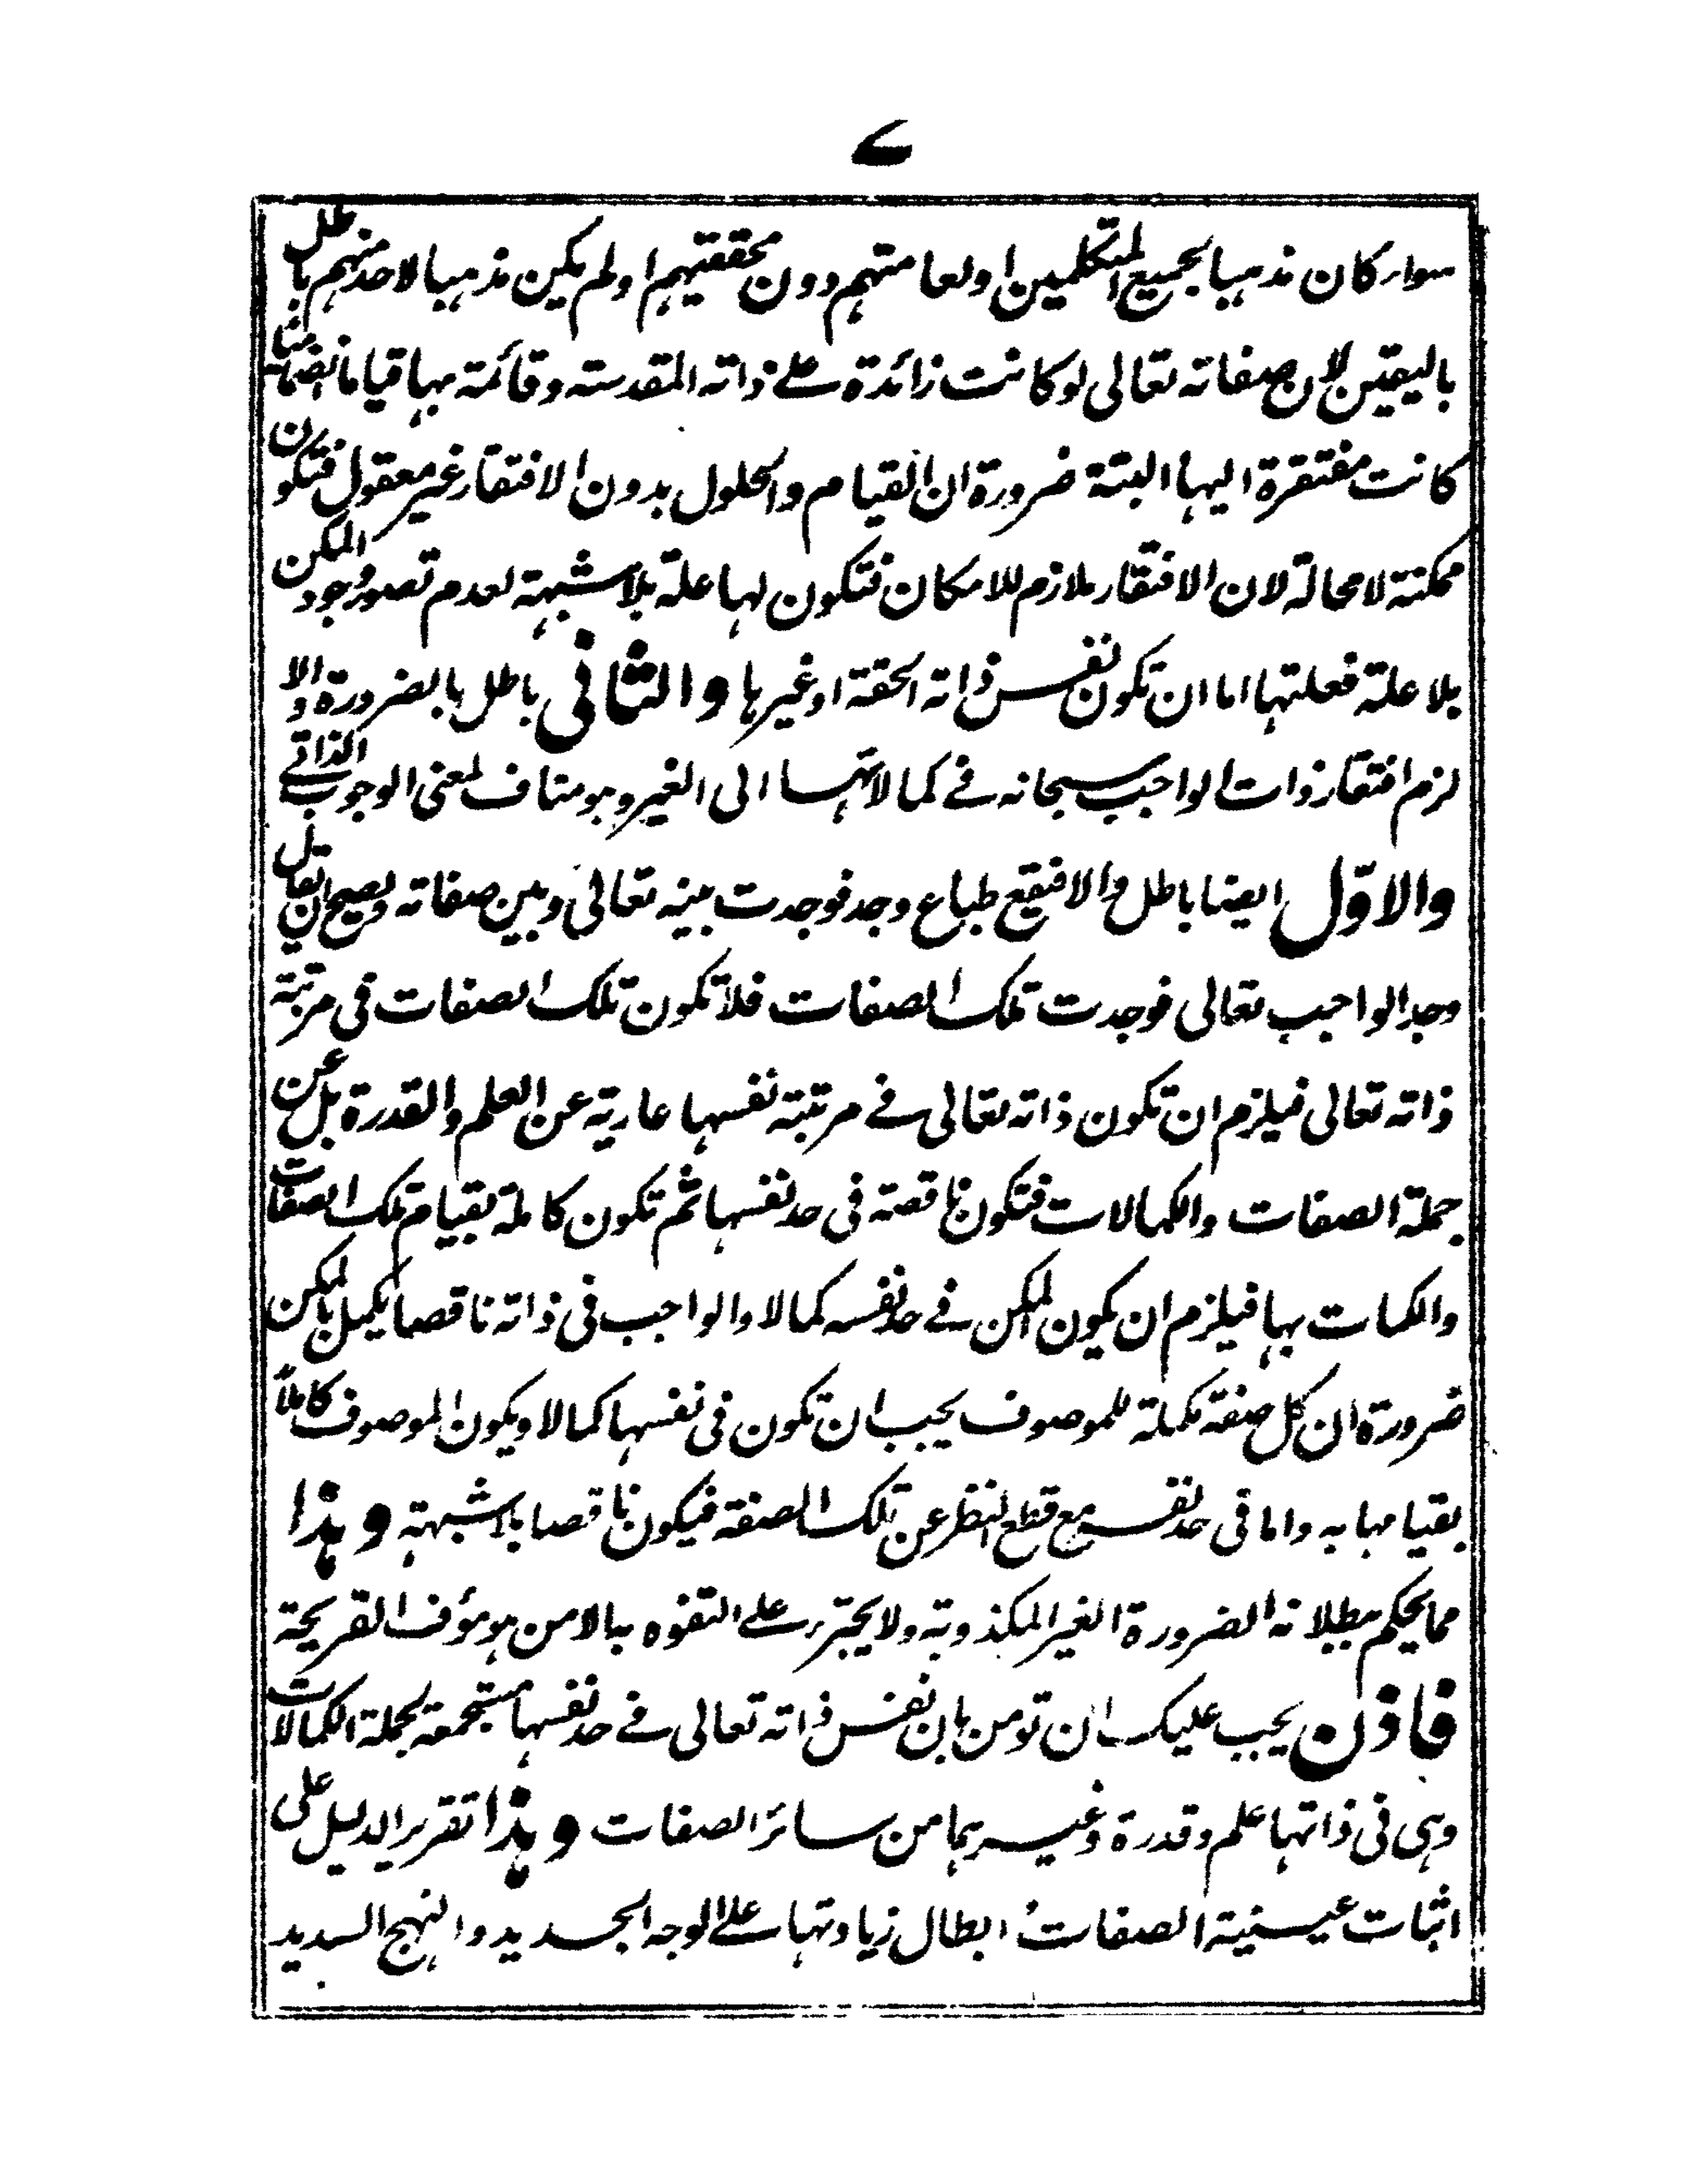 ٧
سواء كان مذهبا لجميع المتكلمين او لعامتهم دون محققيهم او لم يكن مذهبا لاحد منهم باطل
باليقين لان صفاته تعالى لو كانت زائدة على ذاته المقدسة وقائمة بها قياما انضماميا
كانت مفتقرة اليها البتة ضرورة ان القيام والحلول بدون الافتقار غير معقول فتكون
ممكنة لا محالة لان الافتقار ملازم للامكان فتكون لها علة بلا شبهة لعدم تصور وجود الممكن
بلا علة فعلتها اما ان تكون نفس ذاته الحقة او غيرها والثاني باطل بالضرورة والا
لزم افتقار ذات الواجب سبحانه في كمالاتها الى الغير وهو مناف لمعنى الوجوب الذاتي
والاول ايضا باطل والا فيقع طباع وجد فوجدت بينه تعالى وبين صفاته ويصح ان يقال
وجد الواجب تعالى فوجدت تلك الصفات فلا تكون تلك الصفات في مرتبة
ذاته تعالى فيلزم ان تكون ذاته تعالى في مرتبة نفسها عارية عن العلم والقدرة بل عن
جملة الصفات والكمالات فتكون ناقصة في حد نفسها ثم تكون كاملة بقيام تلك الصفات
والكمات بها فيلزم ان يكون الممكن في حد نفسه كمالا والواجب في ذاته ناقصا يكمل بالممكن
ضرورة ان كل صفة مكملة للموصوف يجب ان تكون في نفسها كمالا ويكون الموصوف كاملا
بقيامها به واما في حد نفسه مع قطع النظر عن تلك الصفة فيكون ناقصا بلا شبهة وهذا
مما يحكم ببطلانه الضرورة الغير المكذوبة ولا يجترء على التفوه به الا من هو مؤف القريحة
فاذن يجب عليك ان تومن بان نفس ذاته تعالى في حد نفسها مستجمعة لجملة الكمالات
وهي في ذاتها علم وقدرة وغيرهما من سائر الصفات وهذا تقرير الدليل على
اثبات عينية الصفات و ابطال زيادتها على الوجه الجديد والنهج السديد